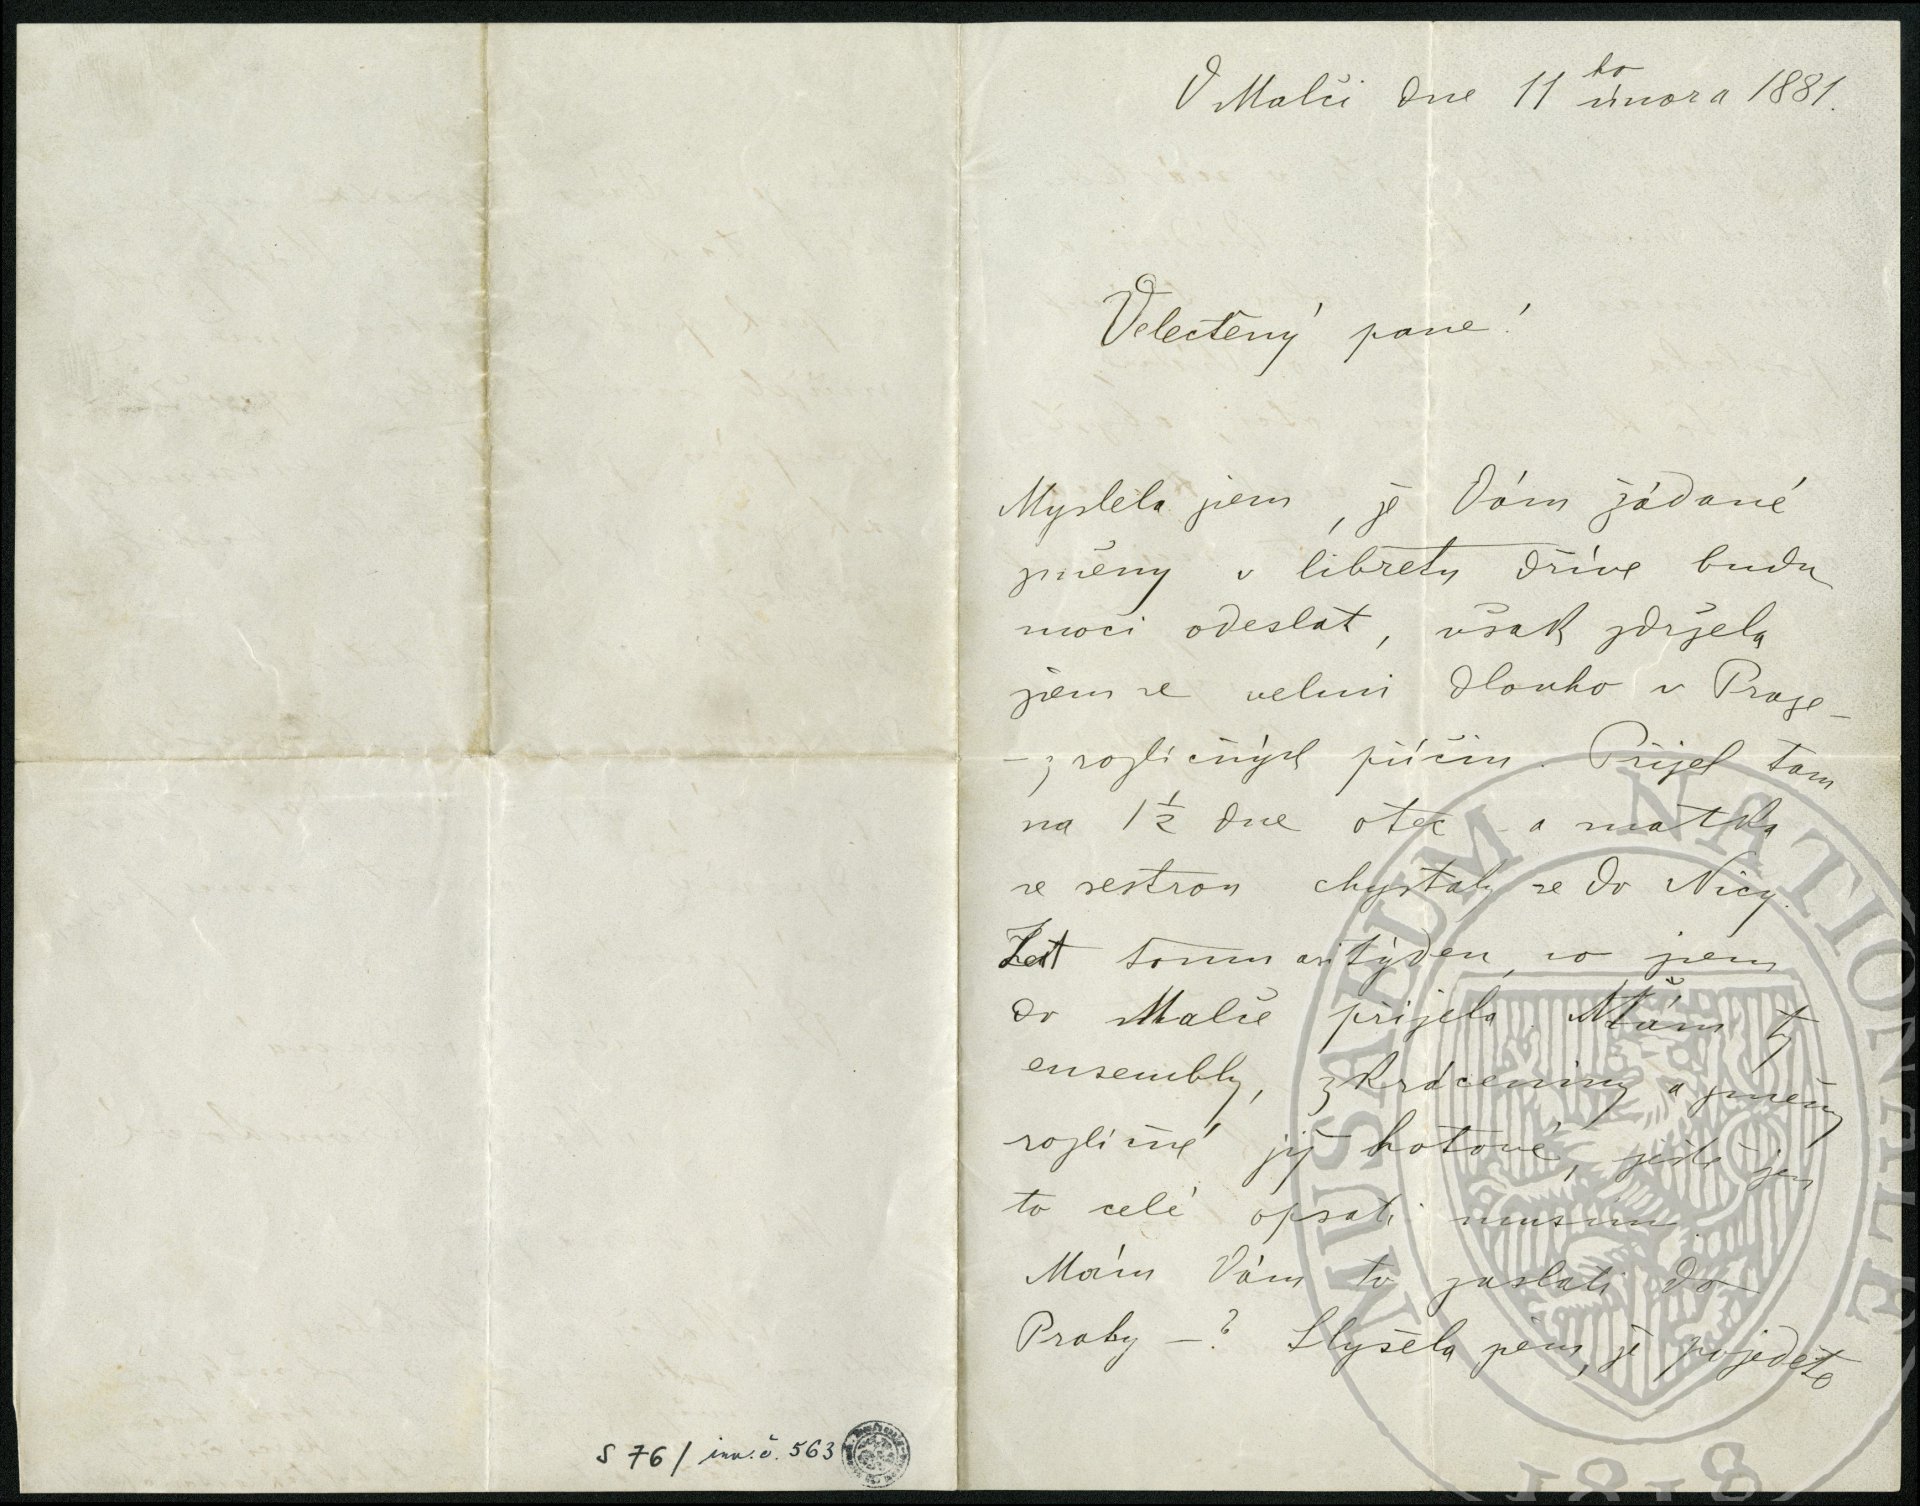 V Malči dne 11ho února 1881.
Velectěný pane!
Myslela jsem, že Vám žádané
změny v libretu dříve budu
moci odeslat, však zdržela
jsem se velmi dlouho v Praze –
– z rozličných příčin. Přijel tam
na 1½ dne otec – a matka
se sestrou chystaly se do Nicy.
Jest tomu asi týden, co jsem
do Malče přijela. Mám ty
ensembly, zkráceniny a změny
rozličné již hotové, ještě jen
to celé opsati musím.
Mám Vám to zaslati do
Prahy –? Slyšela jsem, že pojedete
S 76/ inv. č. 563
MUSAEUM NATIONALE
1818